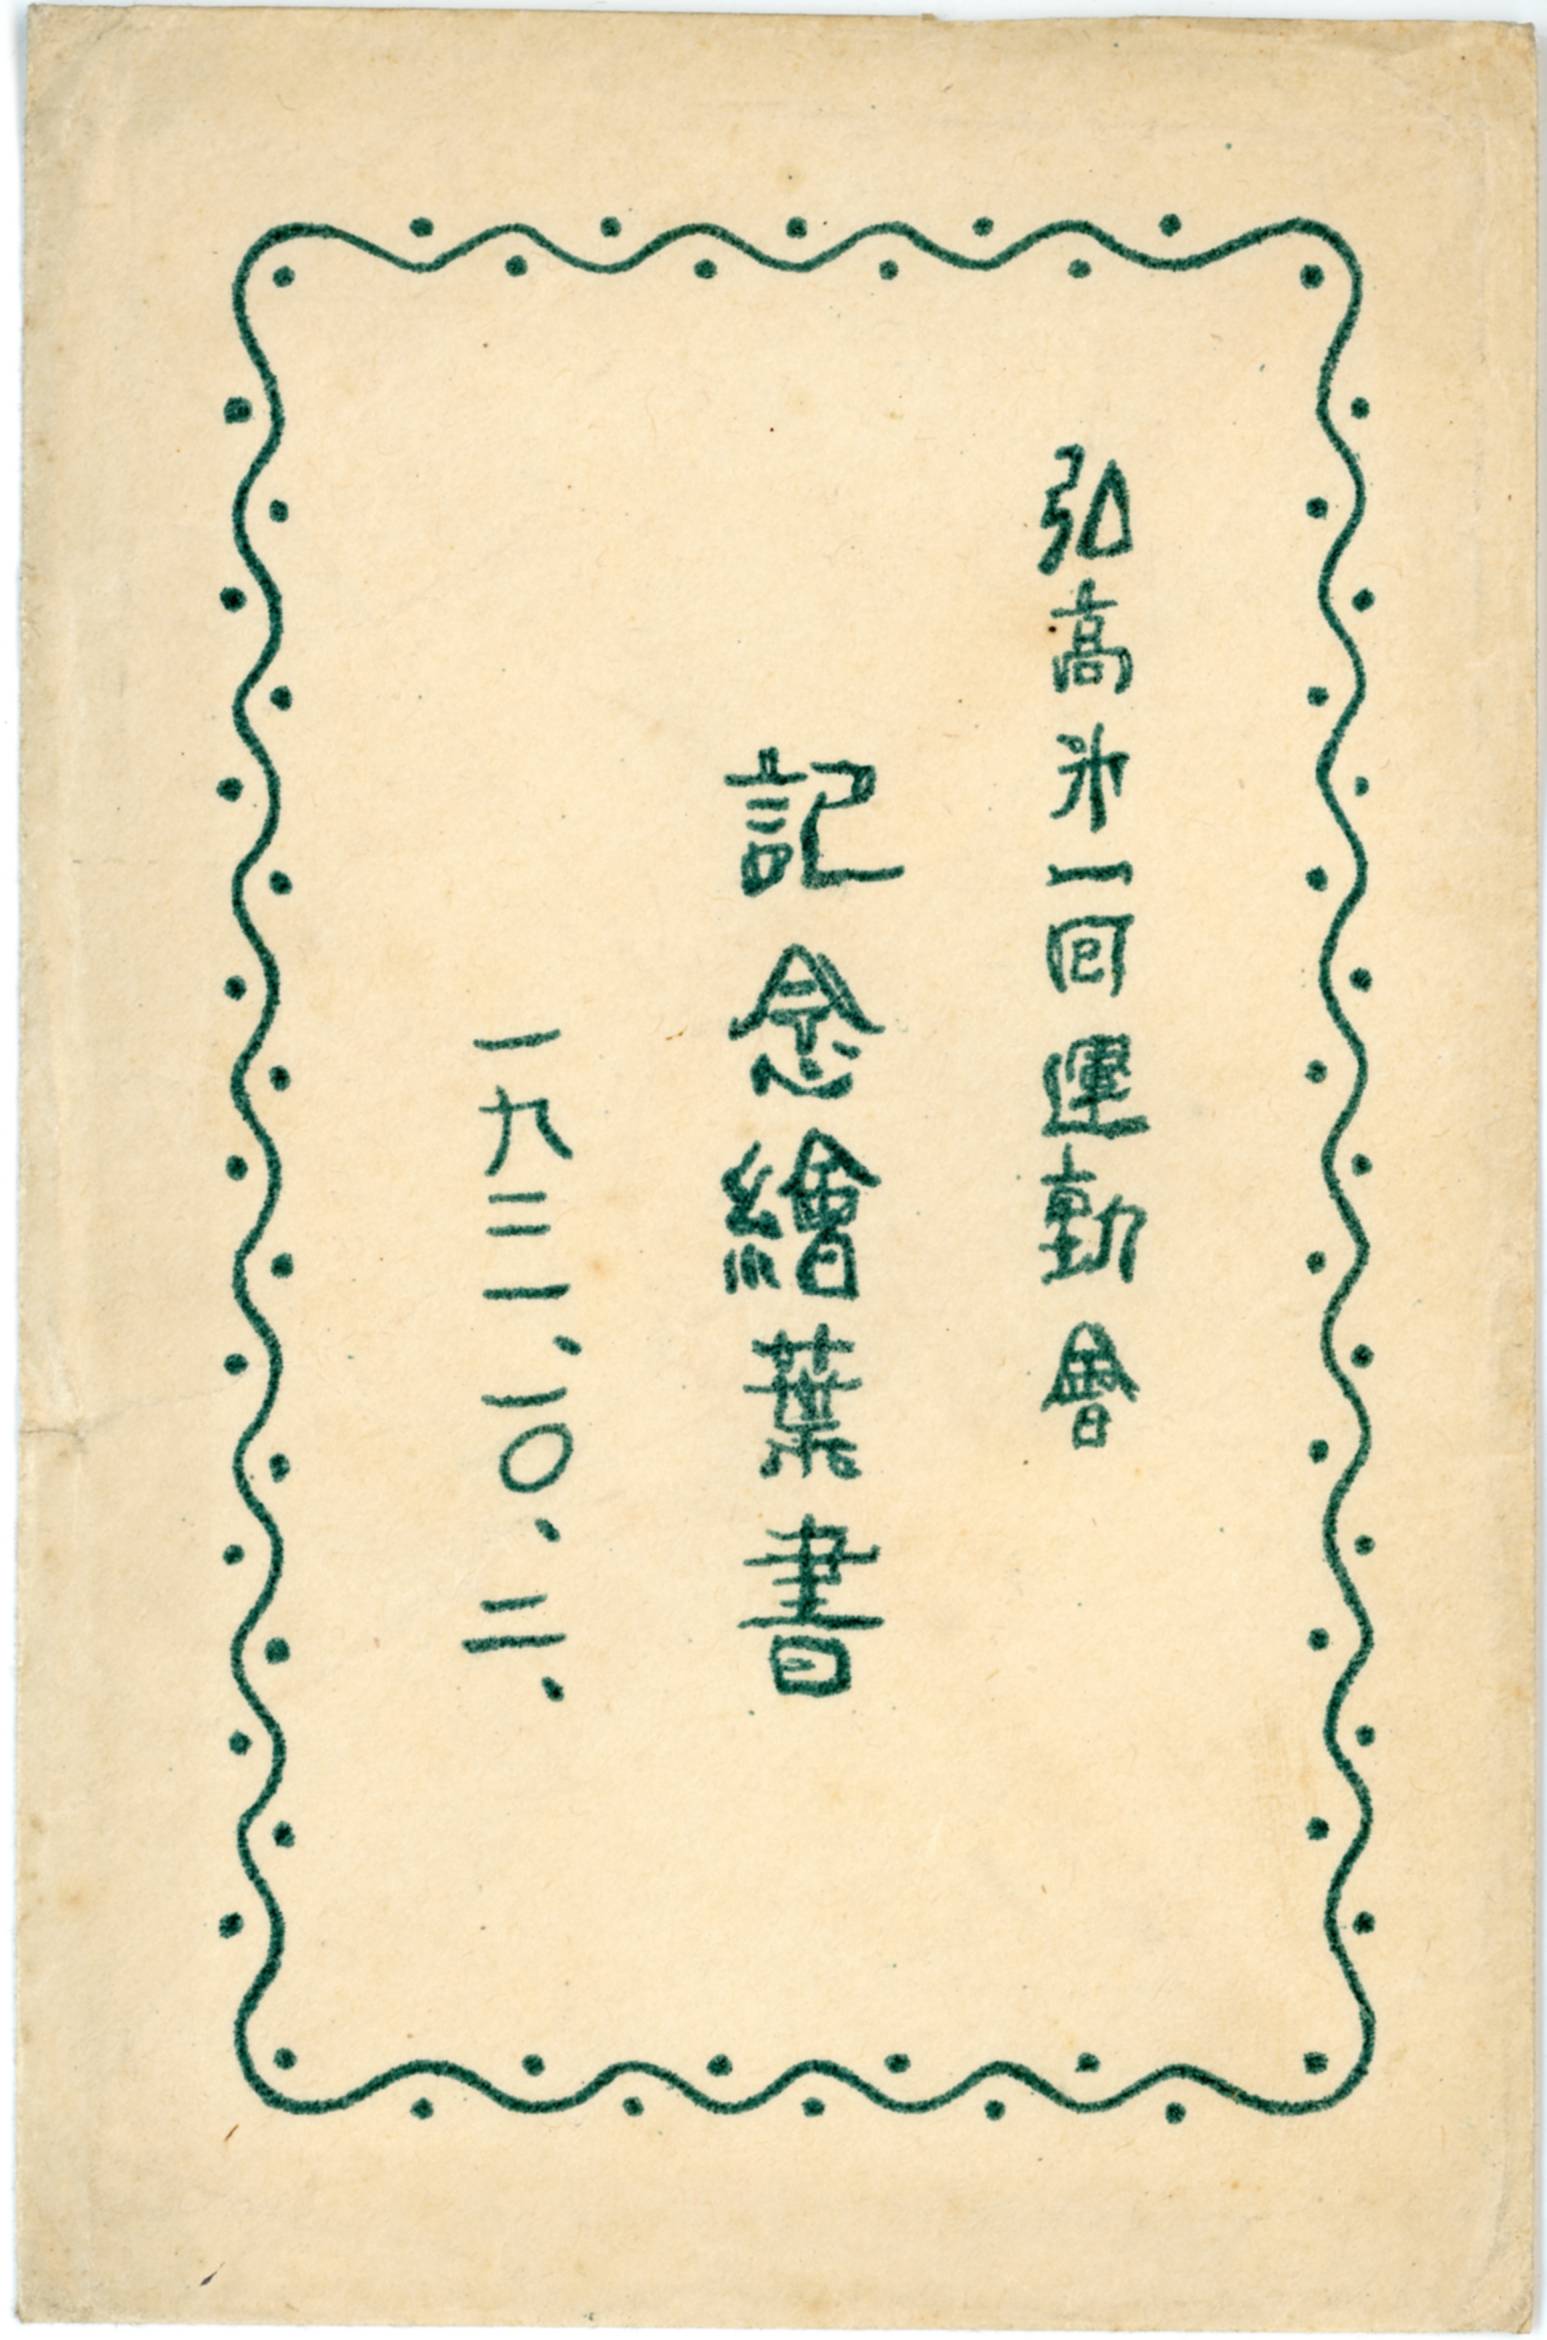 弘高第一回運動會
記念繪葉書
一九二一、一〇、二、